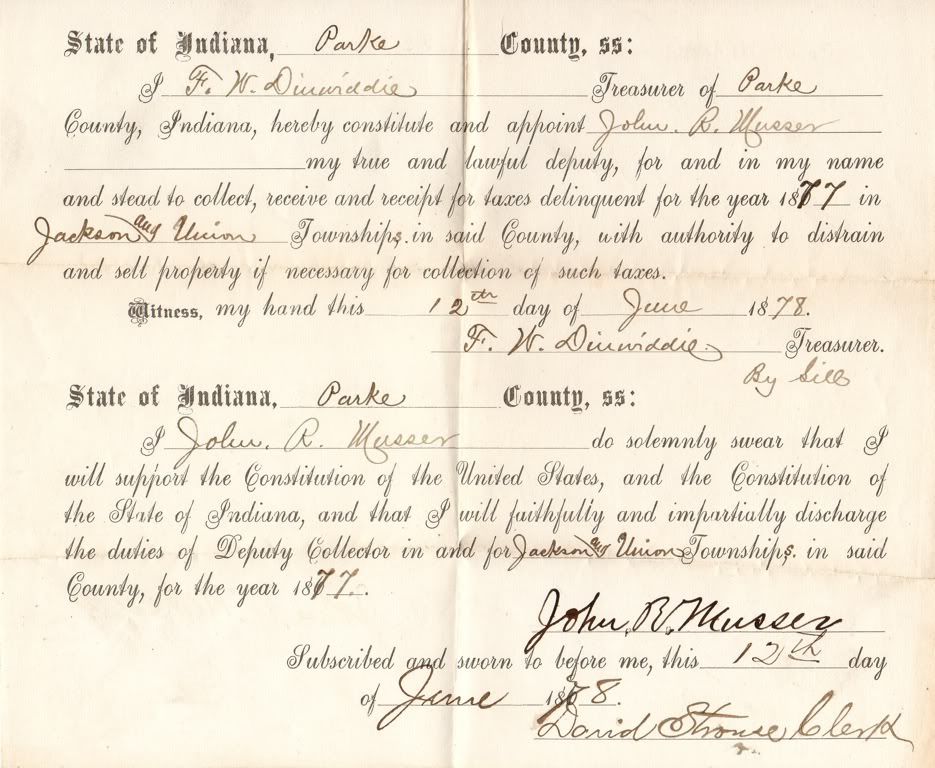 State of Indiana, Parke County, ss:
I F. W. Dinwiddie Treasurer of Parke
County, Indiana, hereby constitute and appoint John. R. Musser
my true and lawful deputy, for and in my name
and stead to collect, receive and receipt for taxes delinquent for the year 1877 in
Jackson and Union Townships. in said County, with authority to distrain
and sell property if necessary for collection of such taxes.
Witness, my hand this 12th day of June 1878.
F. W. Dinwiddie. Treasurer.
By Gill
State of Indiana, Parke County, ss:
I John. R. Musser do solemnly swear that I
will support the Constitution of the United States, and the Constitution of
the State of Indiana, and that I will faithfully and impartially discharge
the duties of Deputy Collector in and for Jackson and Union Townships. in said
County, for the year 1877.
John. R. Musser
Subscribed and sworn to before me, this 12th day
of June 1878.
David Strouse Clerk